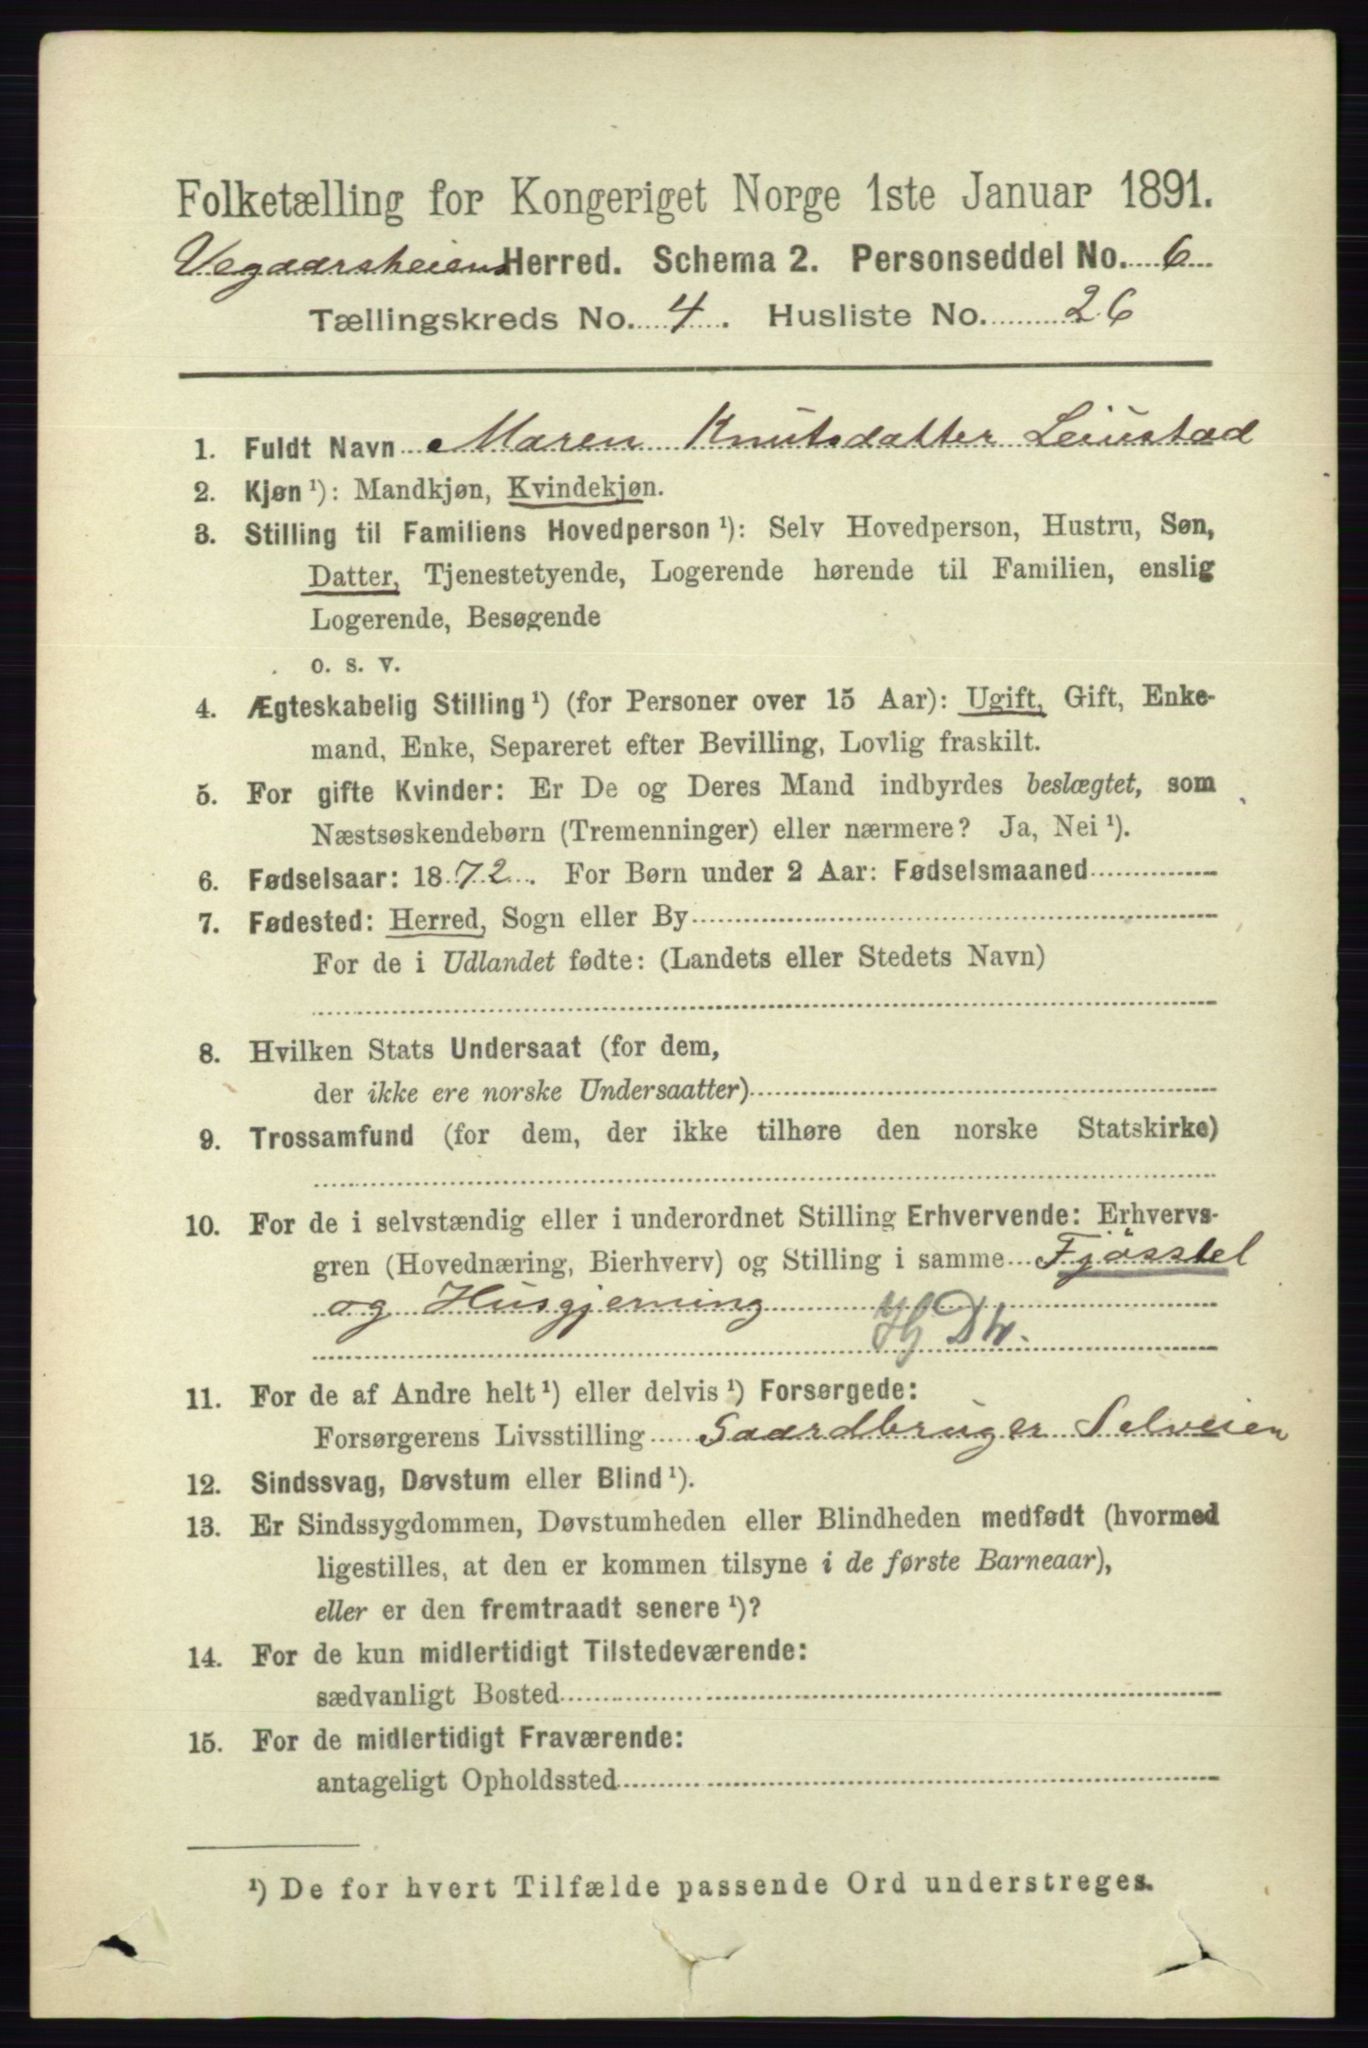 Folketælling for Kongeriget Norge 1ste Januar 1891.
Vegaarsheiens Herred. Schema 2. Personseddel No. 6
Tællingskreds No. 4. Husliste No. 26
1. Fuldt Navn Maren Knutsdatter Leiustad
2. Kjøn ¹): Mandkjøn, Kvindekjøn.
3. Stilling til Familiens Hovedperson ¹): Selv Hovedperson, Hustru, Søn,
Datter, Tjenestetyende, Logerende hørende til Familien, enslig
Logerende, Besøgende
o. s. v.
4. Ægteskabelig Stilling ¹) (for Personer over 15 Aar): Ugift, Gift, Enke-
mand, Enke, Separeret efter Bevilling, Lovlig fraskilt.
5. For gifte Kvinder: Er De og Deres Mand indbyrdes beslægtet, som
Næstsøskendebørn (Tremenninger) eller nærmere? Ja, Nei ¹).
6. Fødselsaar: 1872. For Børn under 2 Aar: Fødselsmaaned
7. Fødested: Herred, Sogn eller By
For de i Udlandet fødte: (Landets eller Stedets Navn)
8. Hvilken Stats Undersaat (for dem,
der ikke ere norske Undersaatter)
9. Trossamfund (for dem, der ikke tilhøre den norske Statskirke)
10. For de i selvstændig eller i underordnet Stilling Erhvervende: Erhvervs-
gren (Hovednæring, Bierhverv) og Stilling i samme Fjösstel
og Husgjerning
11. For de af Andre helt ¹) eller delvis ¹) Forsørgede:
Forsørgerens Livsstilling Gaardbruger Selveien
12. Sindssvag, Døvstum eller Blind ¹).
13. Er Sindssygdommen, Døvstumheden eller Blindheden medfødt (hvormed
ligestilles, at den er kommen tilsyne i de første Barneaar),
eller er den fremtraadt senere ¹)?
14. For de kun midlertidigt Tilstedeværende:
sædvanligt Bosted
15. For de midlertidigt Fraværende:
antageligt Opholdssted
¹) De for hvert Tilfælde passende Ord understreges.